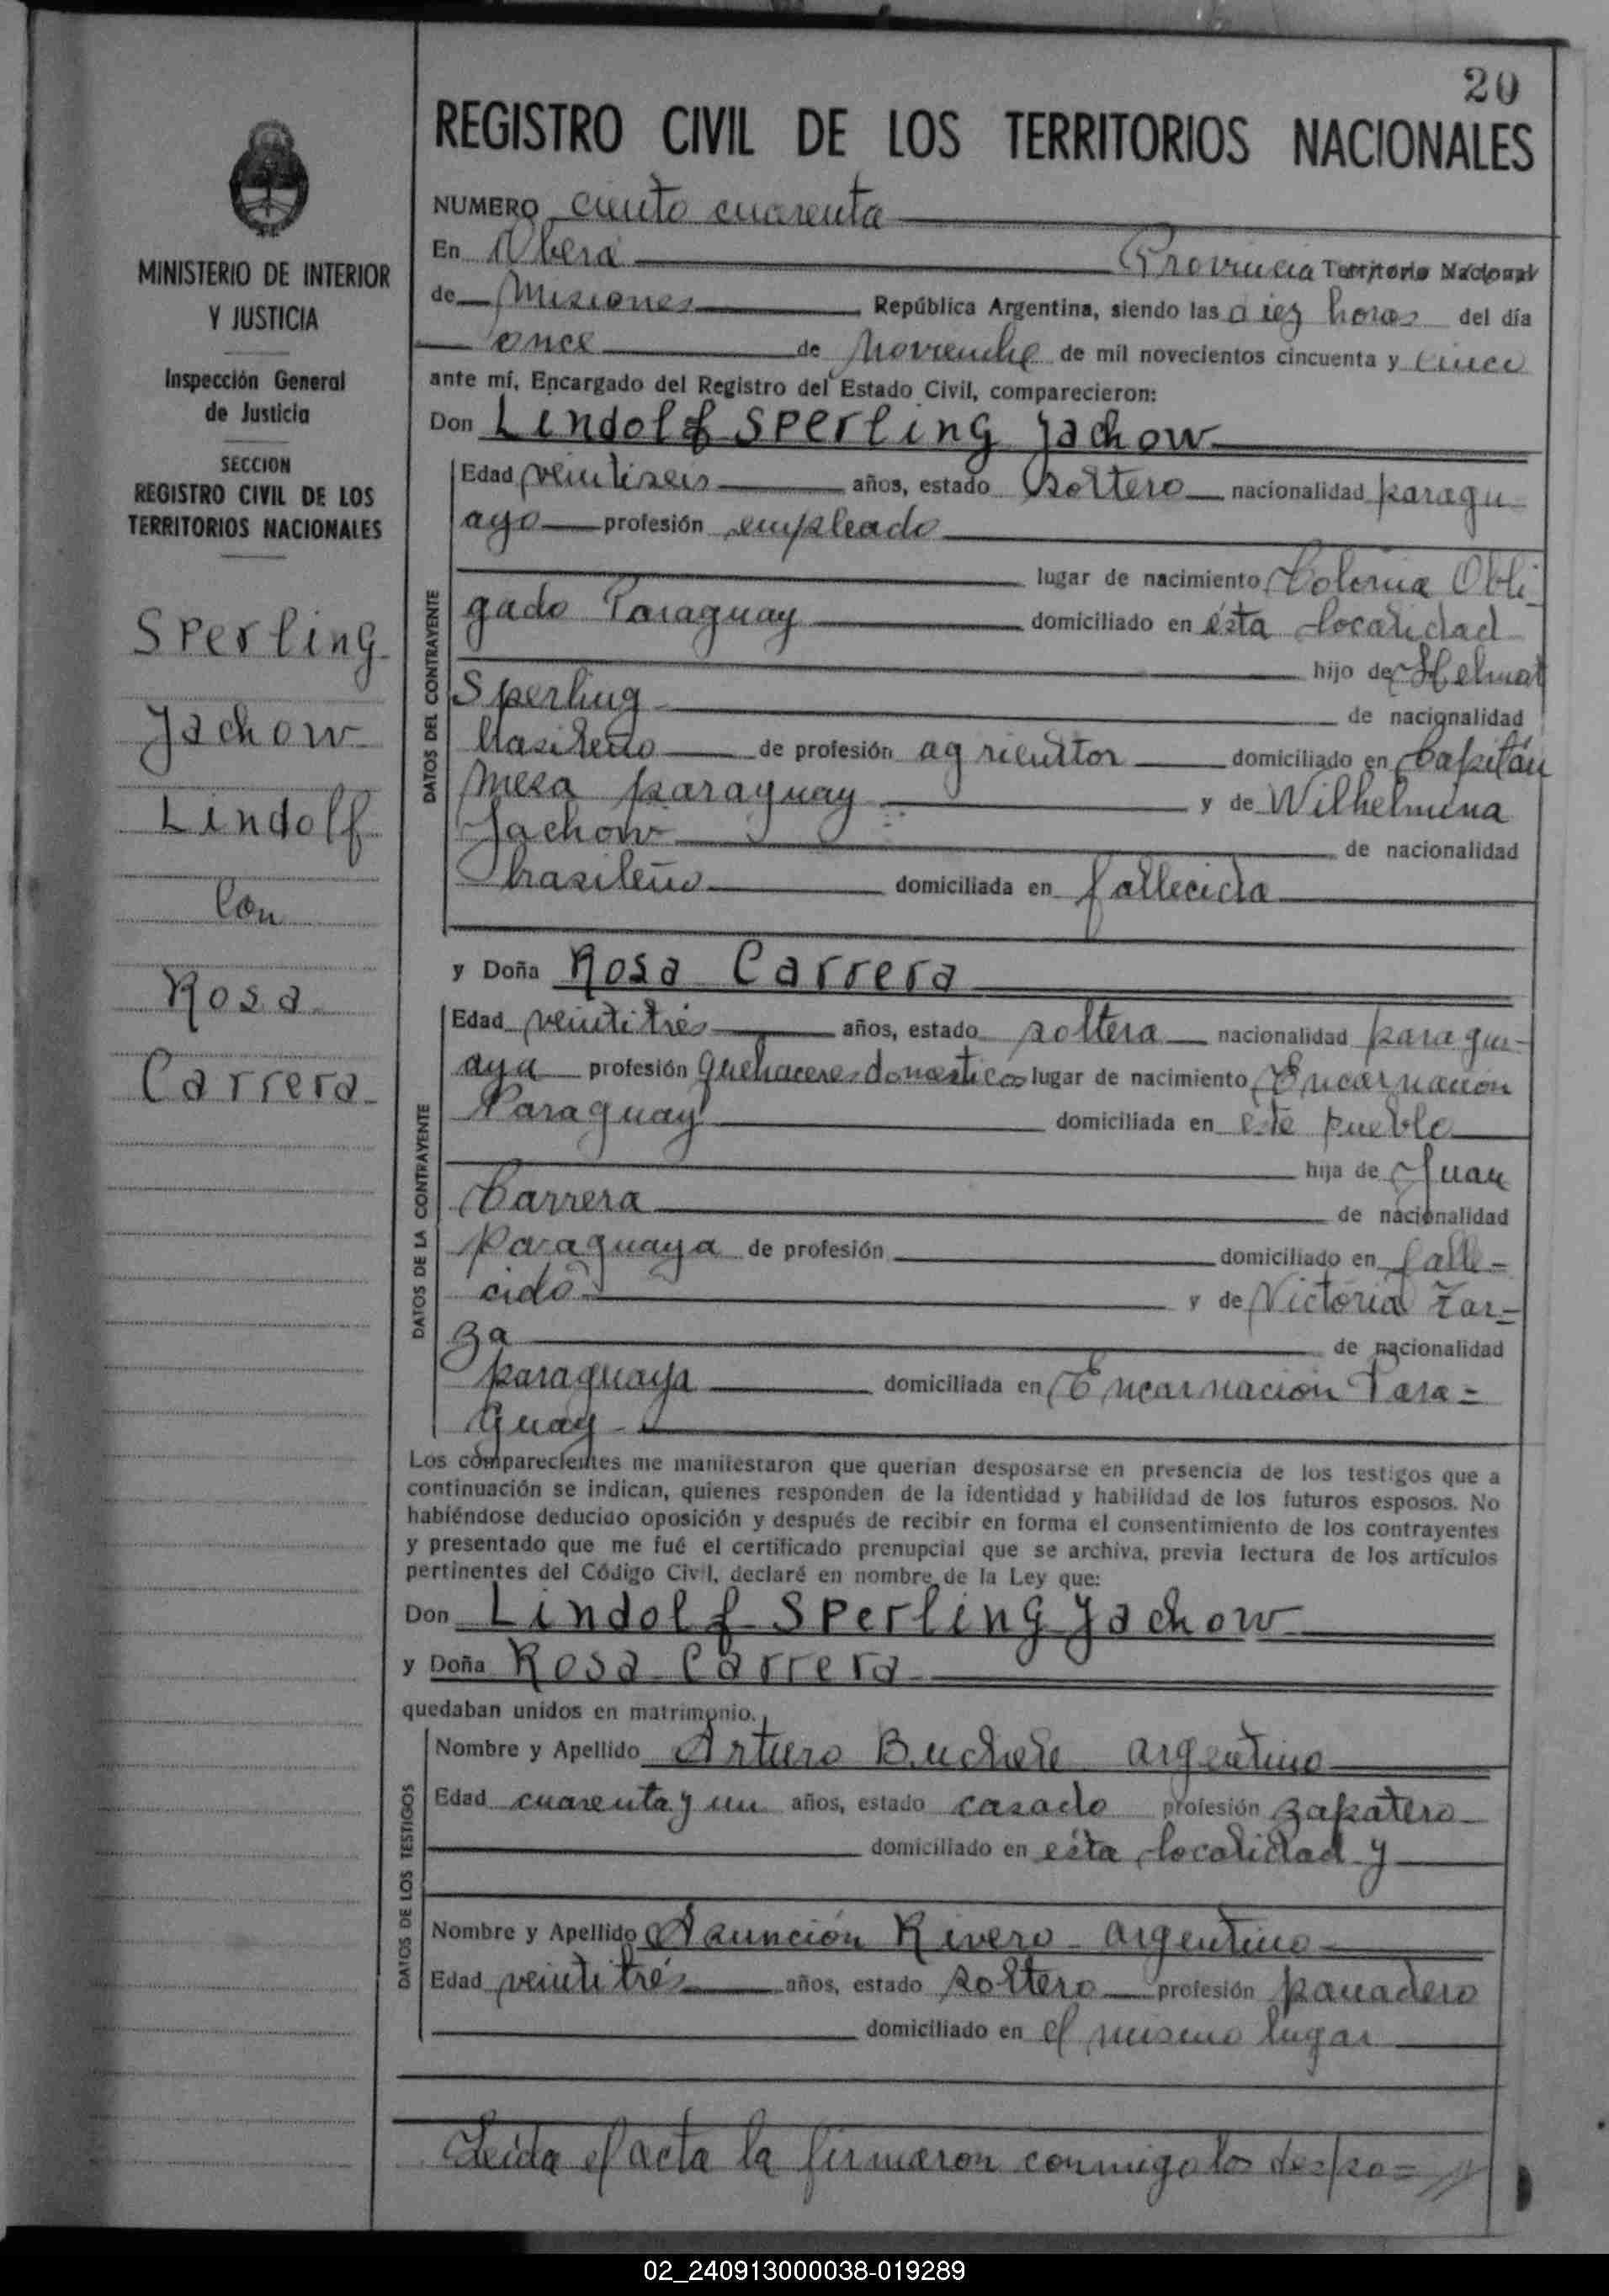 20
REGISTRO CIVIL DE LOS TERRITORIOS NACIONALES
MINISTERIO DE INTERIOR
Y JUSTICIA
Inspección General
de Justicia
SECCION
REGISTRO CIVIL DE LOS
TERRITORIOS NACIONALES
Sperling
Jachow
Lindolf
Con
Rosa
Carrera
NUMERO ciento cuarenta
En Oberá Provincia Territorio Nacional
de Misiones República Argentina, siendo las diez horas del día
once de Noviembre de mil novecientos cincuenta y cinco
ante mí, Encargado del Registro del Estado Civil, comparecieron:
Don Lindolf Sperling Jachow
DATOS DEL CONTRAYENTE
Edad veintiseis años, estado soltero nacionalidad paragu
ayo profesión empleado
lugar de nacimiento Colonia Obli-
gado Paraguay domiciliado en ésta localidad
hijo de Helmut
Sperling de nacionalidad
brasileño de profesión agricultor domiciliado en Capitán
Meza paraguay y de Wilhelmina
Jachow de nacionalidad
brasileño domiciliada en fallecida
y Doña Rosa Carrera
DATOS DE LA CONTRAYENTE
Edad veintitrés años, estado soltera nacionalidad paragu-
aya profesión quehaceres domesticos lugar de nacimiento Encarnación
Paraguay domiciliada en este pueblo
hija de Juan
Carrera de nacionalidad
Paraguaya de profesión domiciliado en falle-
cido y de Victoria Zar=
za de nacionalidad
paraguaya domiciliada en Encarnación Para=
guay
Los comparecientes me manifestaron que querían desposarse en presencia de los testigos que a
continuación se indican, quienes responden de la identidad y habilidad de los futuros esposos. No
habiéndose deducido oposición y después de recibir en forma el consentimiento de los contrayentes
y presentado que me fué el certificado prenupcial que se archiva, previa lectura de los artículos
pertinentes del Código Civil, declaré en nombre de la Ley que:
Don Lindolf Sperling Jachow
y Doña Rosa Carrera
quedaban unidos en matrimonio.
DATOS DE LOS TESTIGOS
Nombre y Apellido Arturo argentino
Edad cuarenta y un años, estado casado profesión zapatero
domiciliado en esta localidad y
Nombre y Apellido Asunción Rivero argentino
Edad veintitrés años, estado soltero profesión panadero
domiciliado en el mismo lugar
Leida el acta la firmaron conmigo los despo= //
02_240913000038-019289